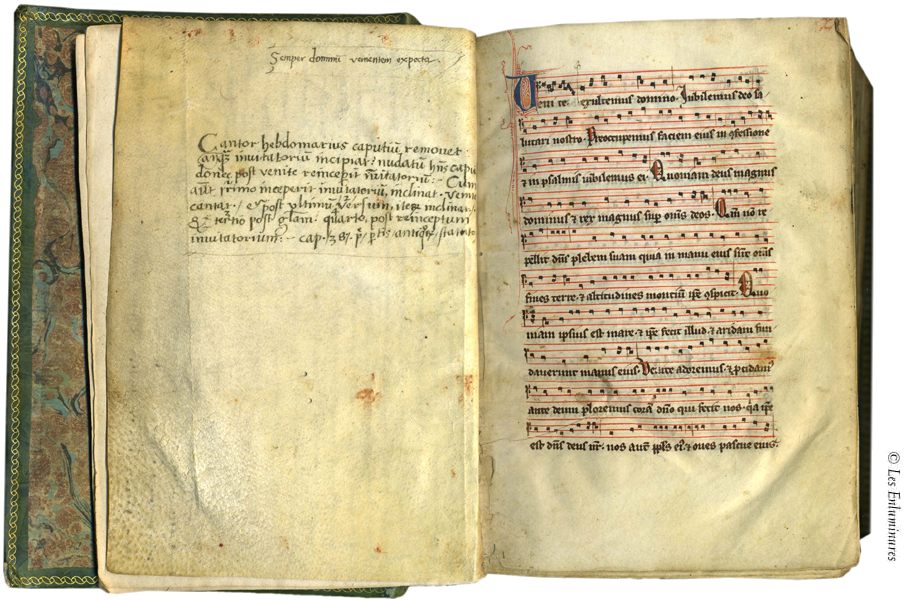 Semper dominū venientem expecta.
Cantor hebdomarius caputiū removet.
inuitatoriū incipiar: nudatū caput
donec post venite reinceperit
primo inceperit inuitatoriū, inclinat. venite
cantar. post vltimū versum, inclinar.
tertio post gl̄am: quarto, post reinceptum
inuitatorium: cap.
Venite exultemus domino. Iubilemus deo sa-
lutari nostro. Preoccupemus faciem eius in
in psalmis iubilemus ei. Quoniam deus magnus
dominus ⁊ rex magnus sup om̄s deos. Qm̄ nō re
pellit dn̄s plebem suam quia in manu eius sūt
fines terre. ⁊ altitudines montiū ip̄e Quo
niam ipsius est mare. ⁊ ip̄e fecit illud. ⁊ aridam fun
dauerunt manus eius. Venite adoremus. ⁊
ante deum ploremus corā dn̄o qui fecit nos. q̄a ip̄e
est dn̄s deus nr̄. nos aut̄ ⁊ oues pascue eius.
© Les Enluminures